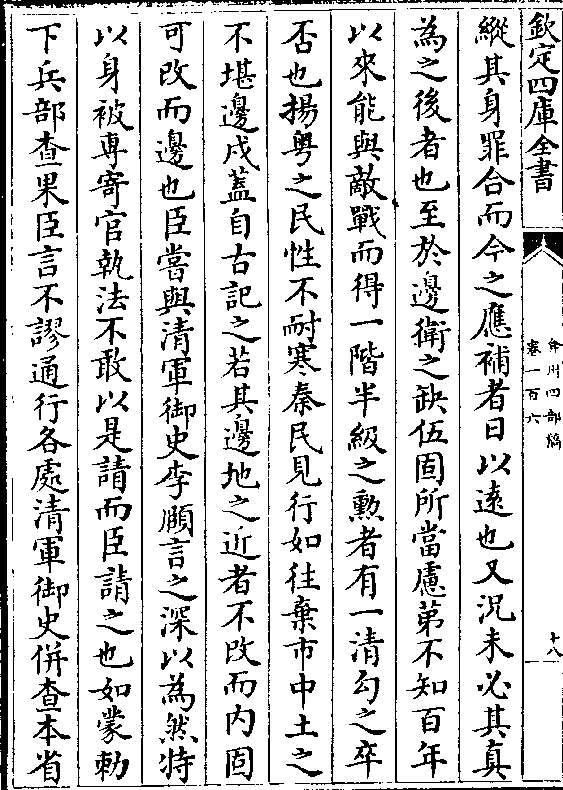 欽定四庫全書
弇州四部稿
卷一百六
十八
縱其身罪合而今之應補者日以遠也又況未必其真
為之後者也至於邊衛之缺伍固所當慮第不知百年
以來能與敵戰而得一階半級之勲者有一清勾之卒
否也揚粤之民性不耐寒秦民見行如往棄市中土之
不堪邊戍蓋自古記之若其邊地之近者不改而内固
可改而邊也臣嘗與清軍御史李頤言之深以為然特
以身被專寄官執法不敢以是請而臣請之也如蒙勅
下兵部查果臣言不謬通行各處清軍御史併查本省